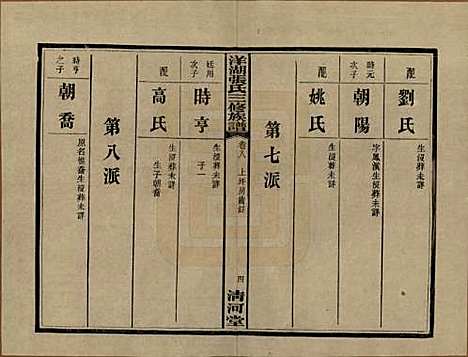 配
劉氏
生歿葬未詳
時元
次子
朝陽
字鳳溪生歿葬未詳
配
姚氏
生歿葬未詳
第七派
洋湖張氏三修族譜
卷八
上圫房齒錄
四
清河堂
廷用
次子
時亨
生歿葬未詳
子一
配
高氏
生歿葬未詳
生子朝喬
第八派
時亨
之子
朝喬
生歿葬未詳